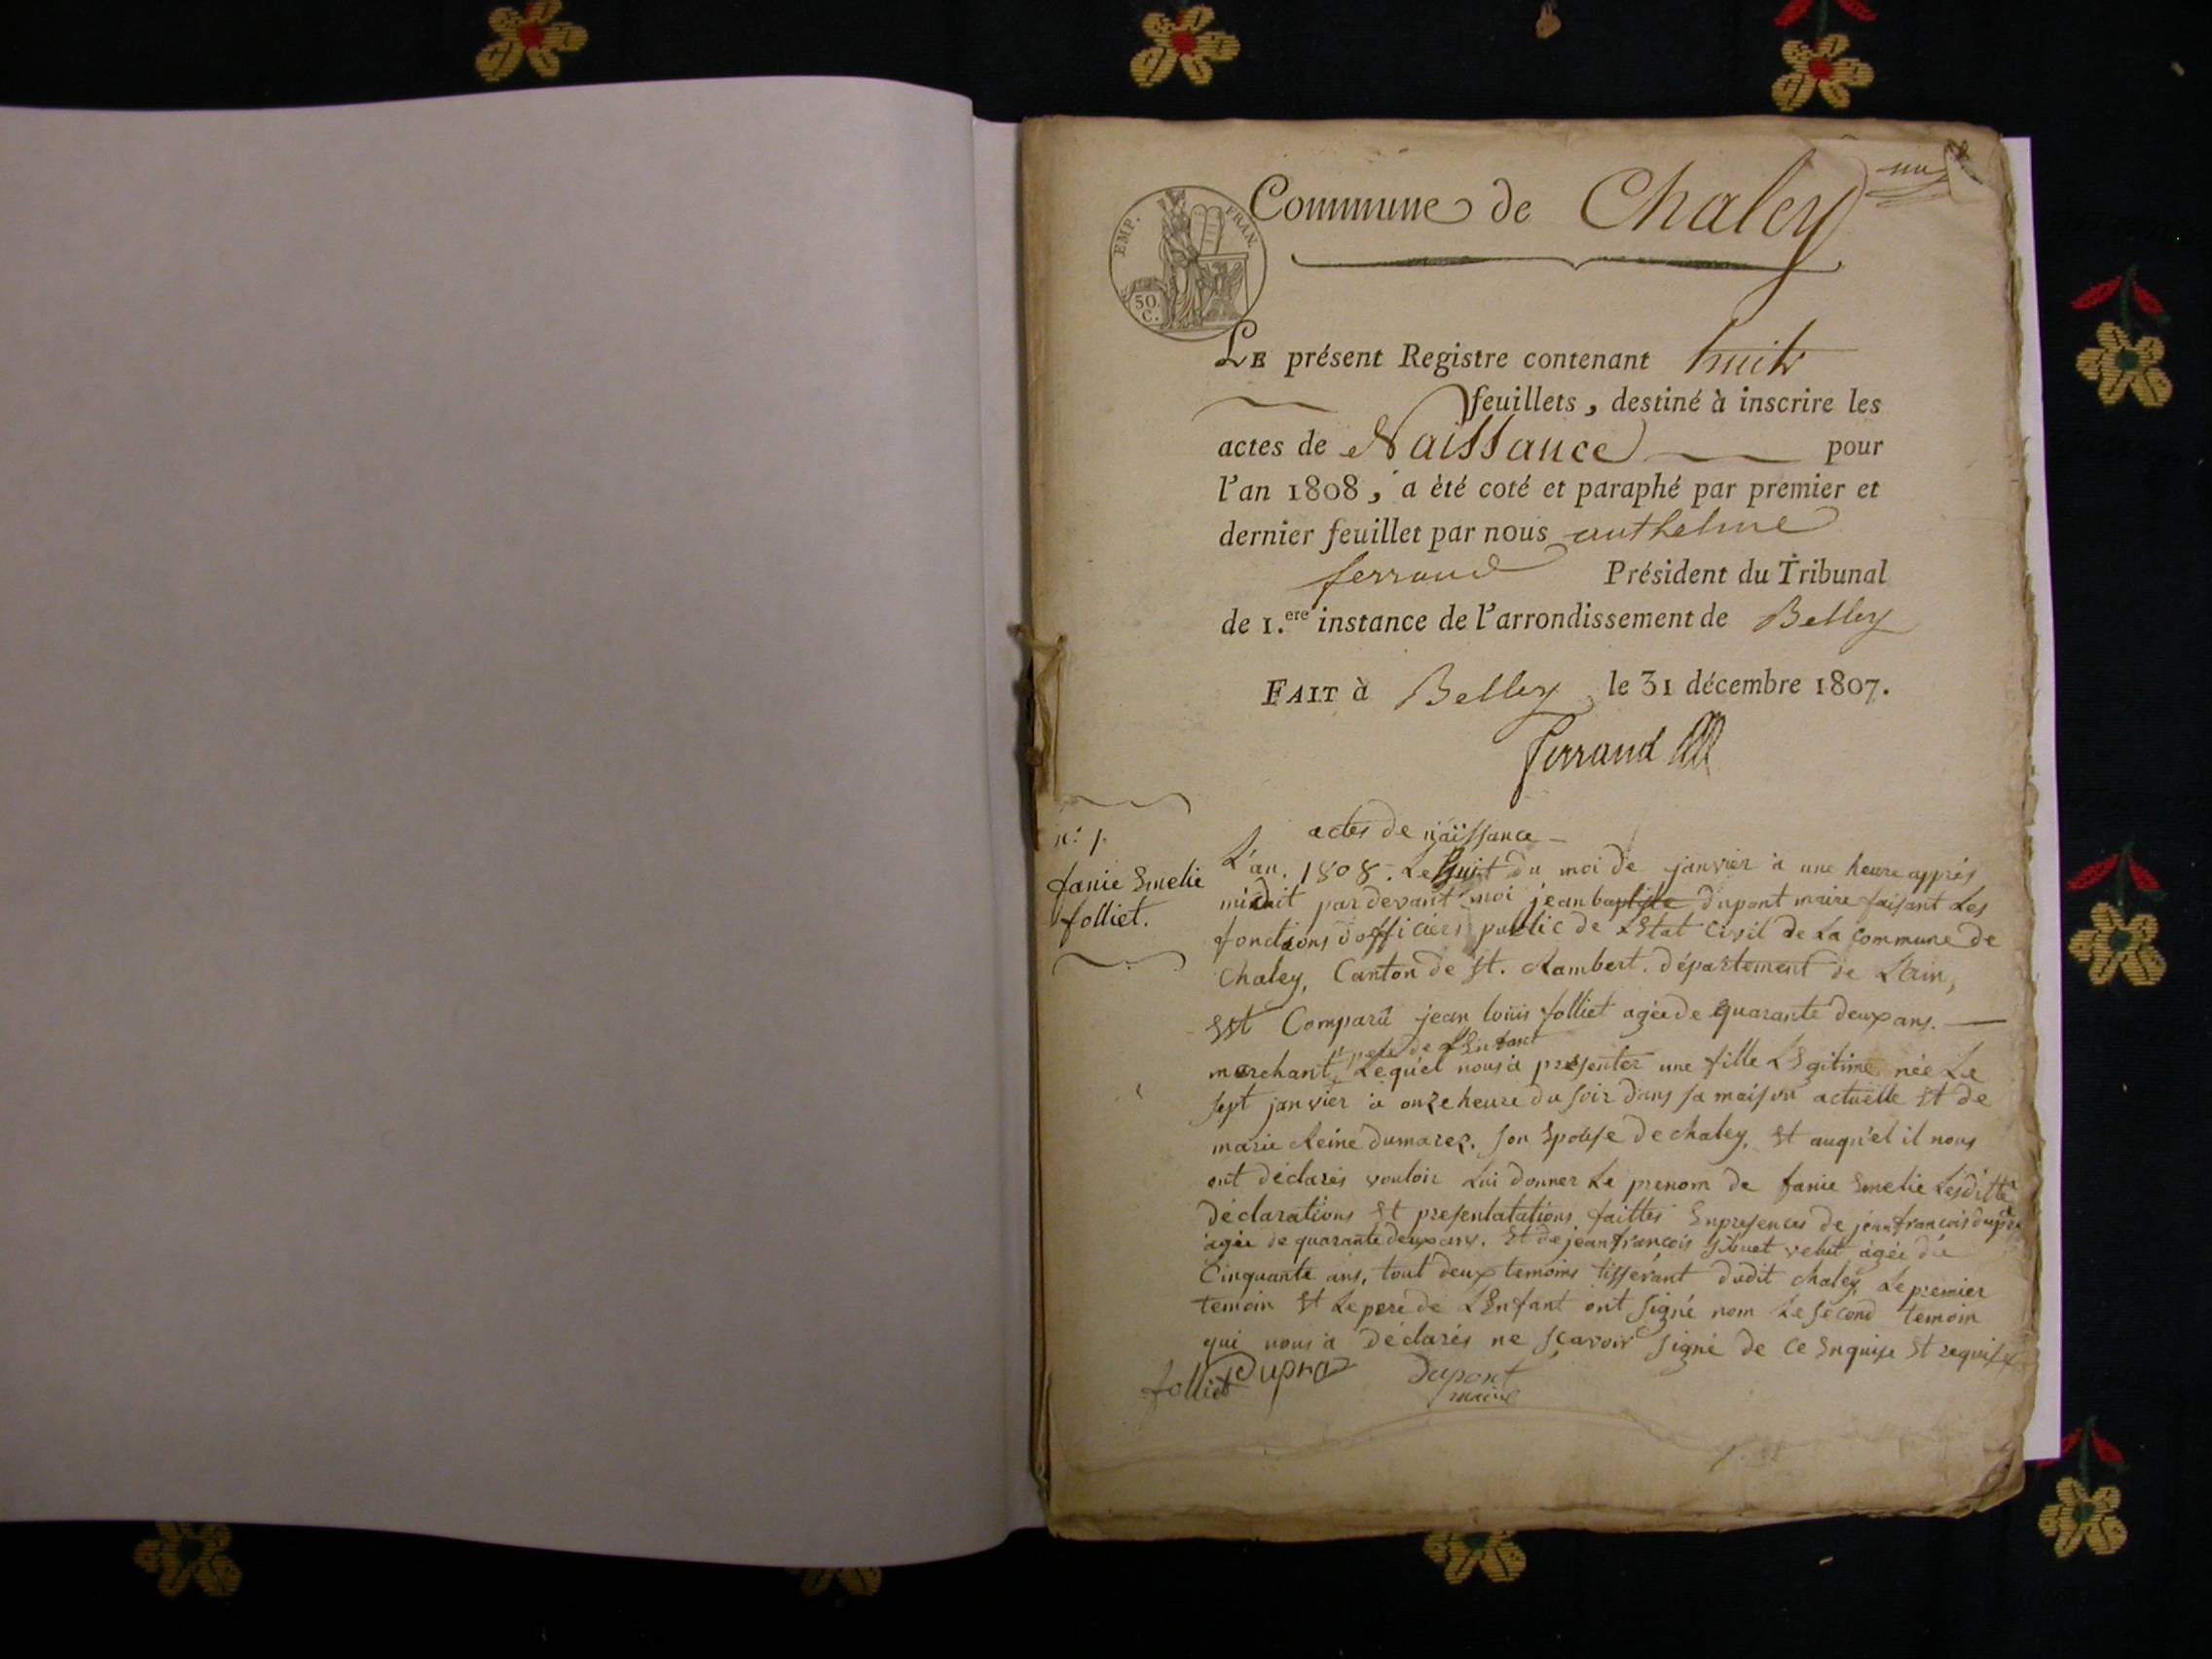 un
Commune de Chaley
EMP. FRAN.
50 C.
LE présent Registre contenant huit
feuillets, destiné à inscrire les
actes de Naissance pour
l'an 1808, a été coté et paraphé par premier et
dernier feuillet par nous anthelme
ferrand Président du Tribunal
de 1.ere instance de l'arrondissement de Belley
FAIT à Belley, le 31 décembre 1807.
Ferrand
n.º 1.
fanie Emelie
folliet.
actes de naissance
L'an. 1808. Le huit du moi de janvier à une heure apprés
midit par devant moi jean baptiste dupont maire faisant Les
fonctions d'officiers public de L'Etat Civil de La Commune de
Chaley, Canton de St. Rambert. département de L'ain,
Est Comparû jean louis folliet agée de quarante deux ans.
pere de L'Enfant
marchant, Lequel nous à présenter une fille LEgitime née Le
sept janvier à onze heure du soir dans sa maison actuelle Et de
marie Reine dumarez. son Epouse de chaley, Et auqu'el il nous
ont déclarés vouloir Lui donner Le prenom de fanie Emelie Lesditte
déclarations Et presentatations faittes En presences de jean francois
agée de quarante deux ans. Et de jean françois agée de
Cinquante ans, tout deux temoins tisserant dudit chaley, Le premier
temoin Et Le pere de L'Enfant ont signé nom Le second temoin
qui nous à déclarés ne sçavoir signé de ce Enquise Et requise
folliet Dupraz Dupont
maire